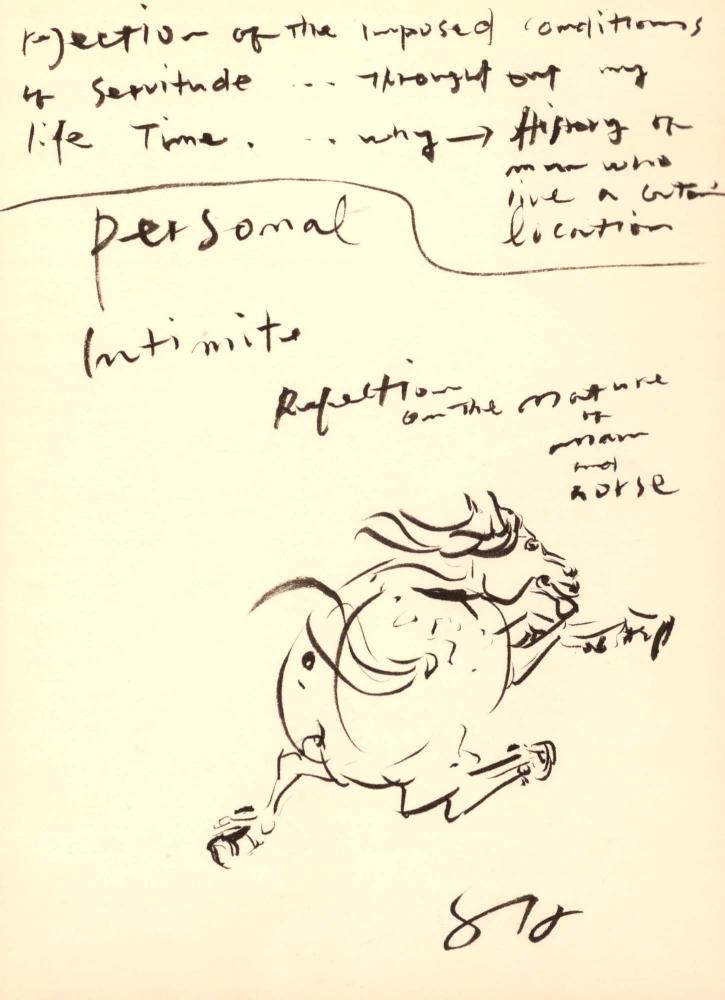 rejection of the imposed conditions
of servitude ... throught out my
life Time. .. why → History of
man who
live a certain
location
personal
Intimite
Reflection
on the nature
of
man
and
horse